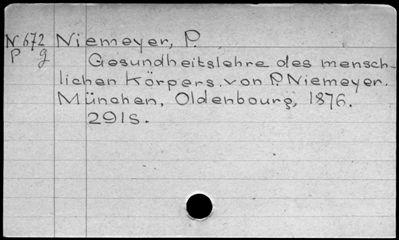 N672 Niemeyer, P.
P g Gesundheitslehre des mensch-
lichen Körpers. von P. Niemeyer.
München, Oldenbourg, 1876.
291s.